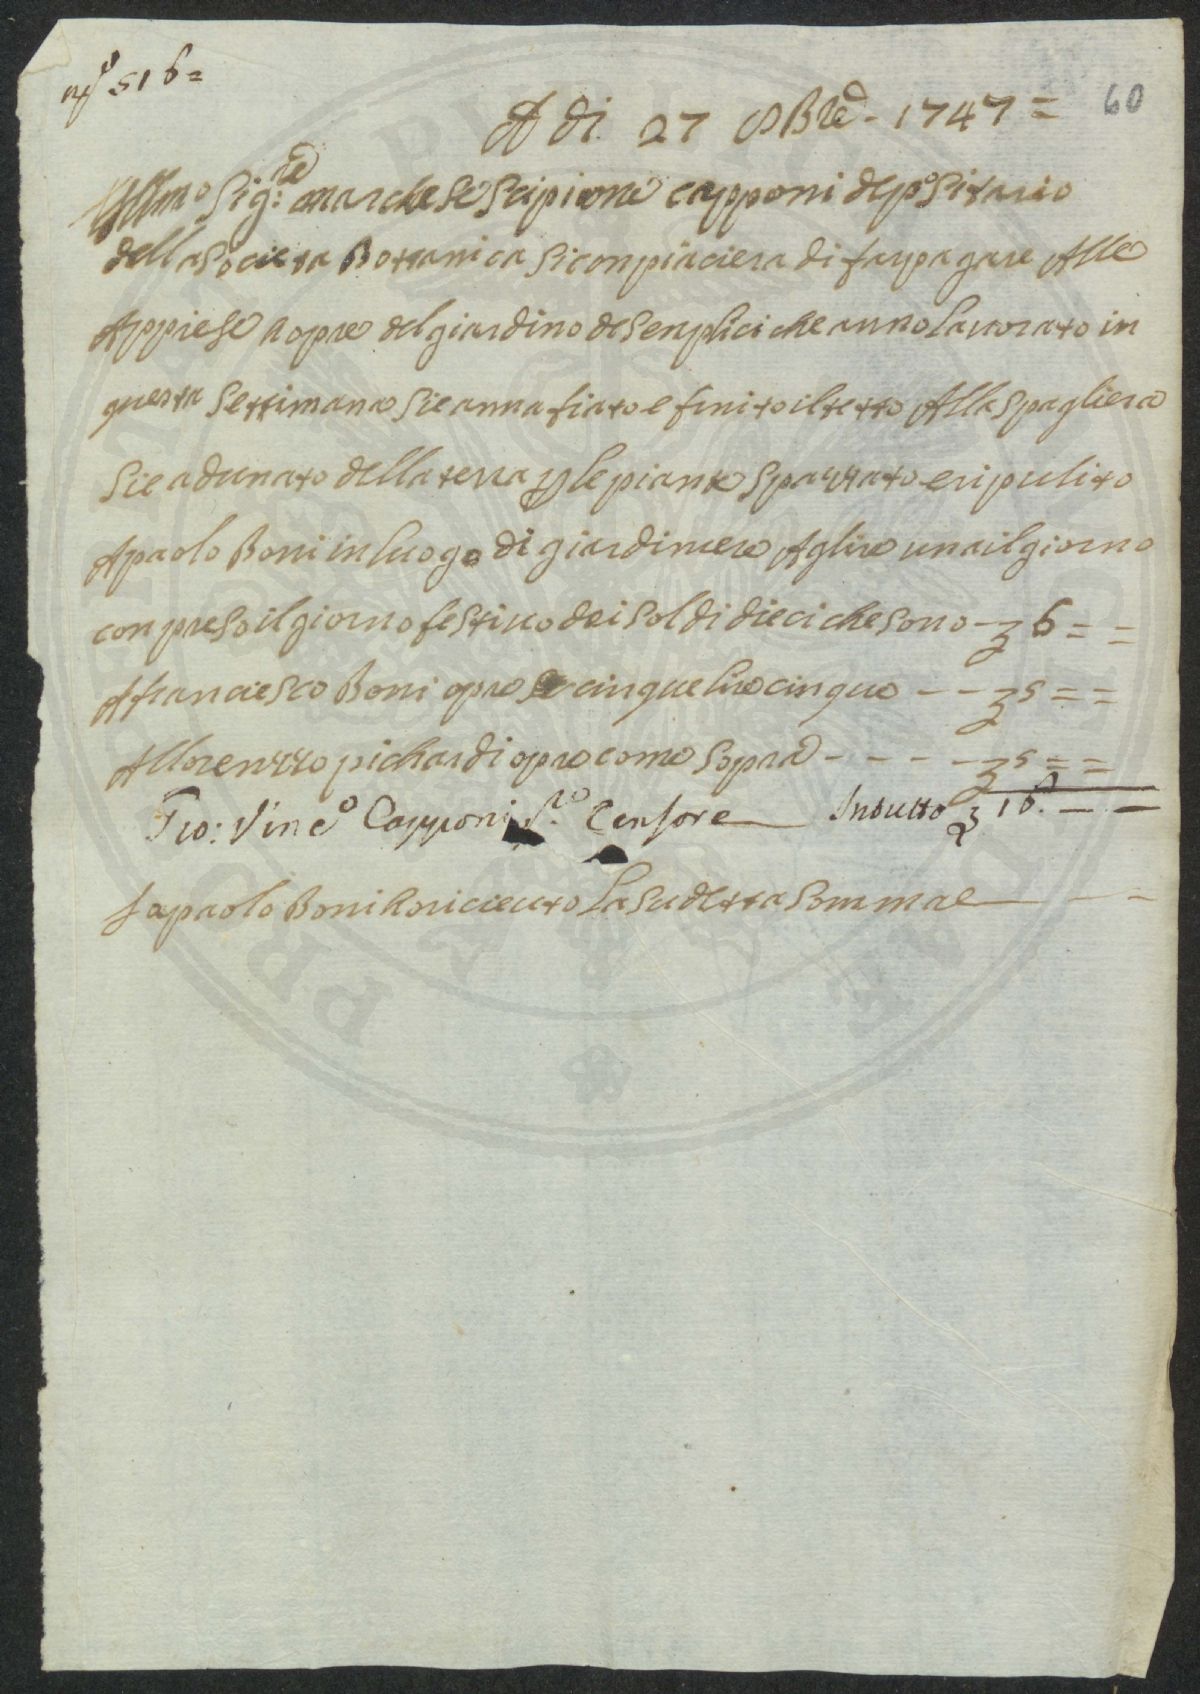 nº 516=
60
A di 27 8Bre - 1747=
Illmo Sig:re marchese Scipione capponi depositario
della Societa Bottanica Si conpiaciera di far pagare Alle
Appiese hopre del giardino de Senplici che anno Lavorato in
questa Settimana Sie annafiato e finito il tetto Alla Spagliera
Sie adunato della terra p le piante Spazzato e ripulito
A paolo Boni in luogo di giardiniere A Lire una il giorno
con preso il giorno festivo dei Soldi dieci che Sono - £ 6 = =
A franciesco Boni opre cinque lire cinque - - £ 5 = =
A llorenzzo pichardi opre come Sopra - - - - £ 5 = =
Gio: Vinc.º Capponi Censore Intutto £ 16. — —
Io paolo Boni ho riceuto La Sudetta Somma e — — —